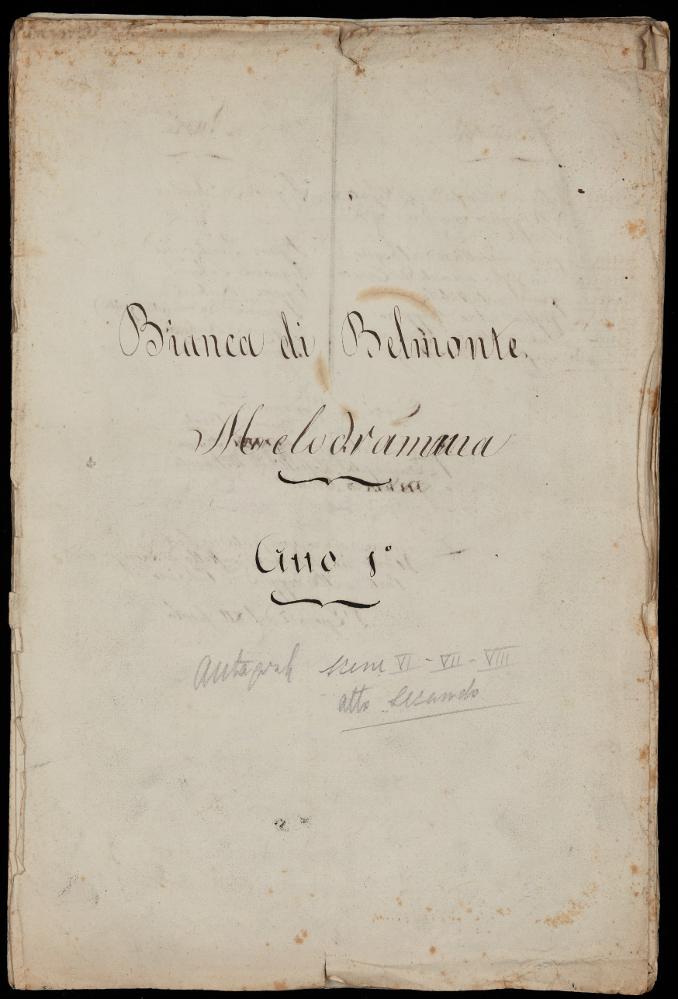 Bianca di Belmonte.
Melodramma
Atto 1°
Autografe scene VI - VII - VIII
atto secondo